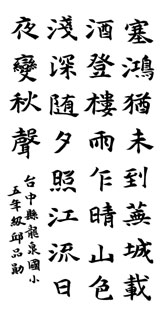 塞鴻猶未到蕪城載
酒登樓雨乍晴山色
淺深随夕照江流日
夜變秋聲
台中縣龍泉國小
五年級邱品勛